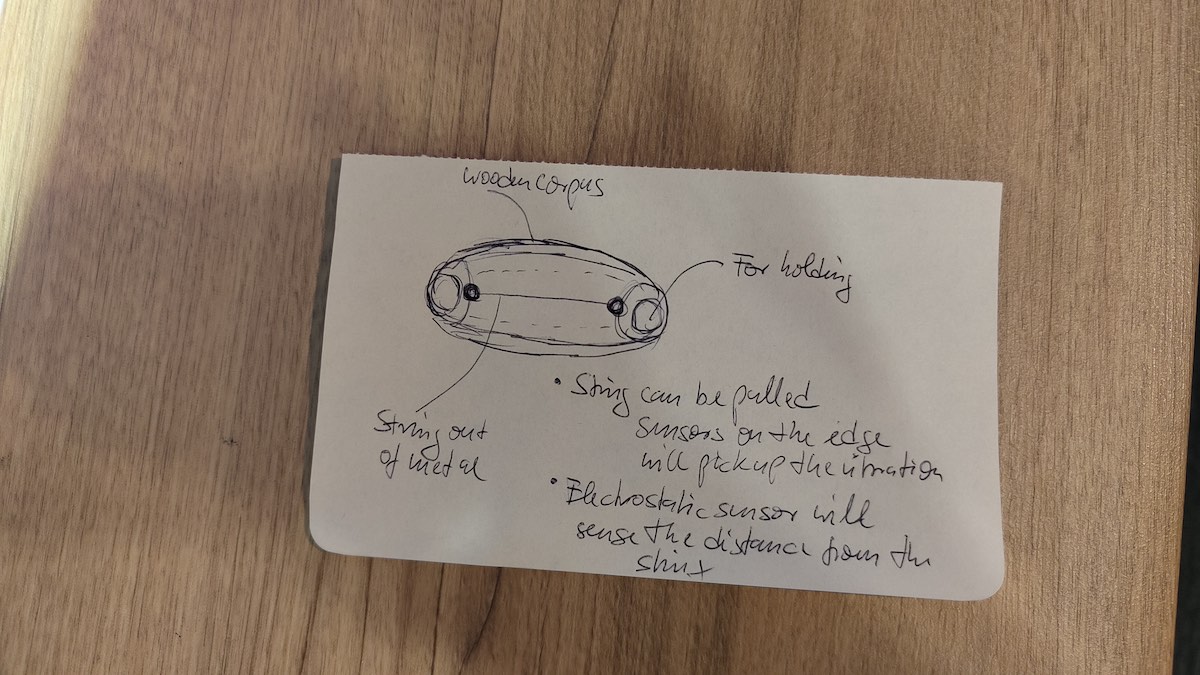 wooden corpus
For holding
String out
of metal
• String can be pulled
sensors on the edge
will pick up the vibration
• Electrostatic sensor will
sense the distance from the